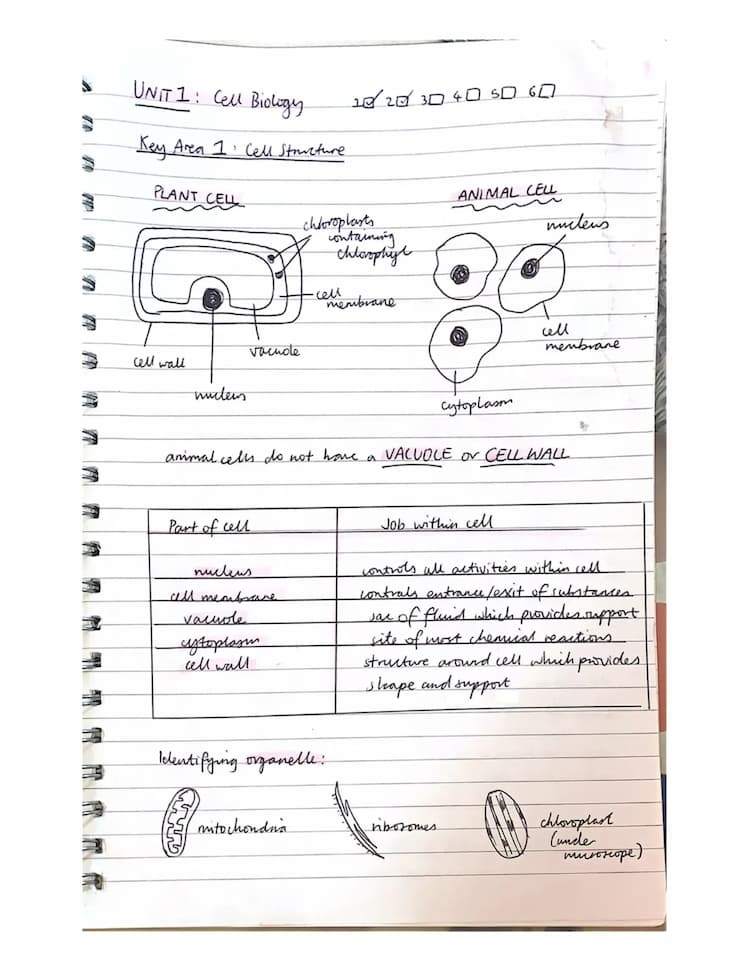 UNIT 1: Cell Biology 1☑ 2☑ 3☐ 4☐ 5☐ 6☐
Key Area 1: Cell Structure
PLANT CELL
ANIMAL CELL
chloroplasts
containing
chlorophyl
nucleus
cell
membrane
cell wall
vacuole
nucleus
cell
membrane
cytoplasm
animal cells do not have a VACUOLE or CELL WALL
Part of cell Job within cell
nucleus controls all activities within cell
cell membrane controls entrance/exit of substances
vacuole sac of fluid which provides support
cytoplasm site of most chemical reactions
cell wall structure around cell which provides
shape and support
Identifying organelle:
mitochondria
ribosomes
chloroplast
(under
microscope)